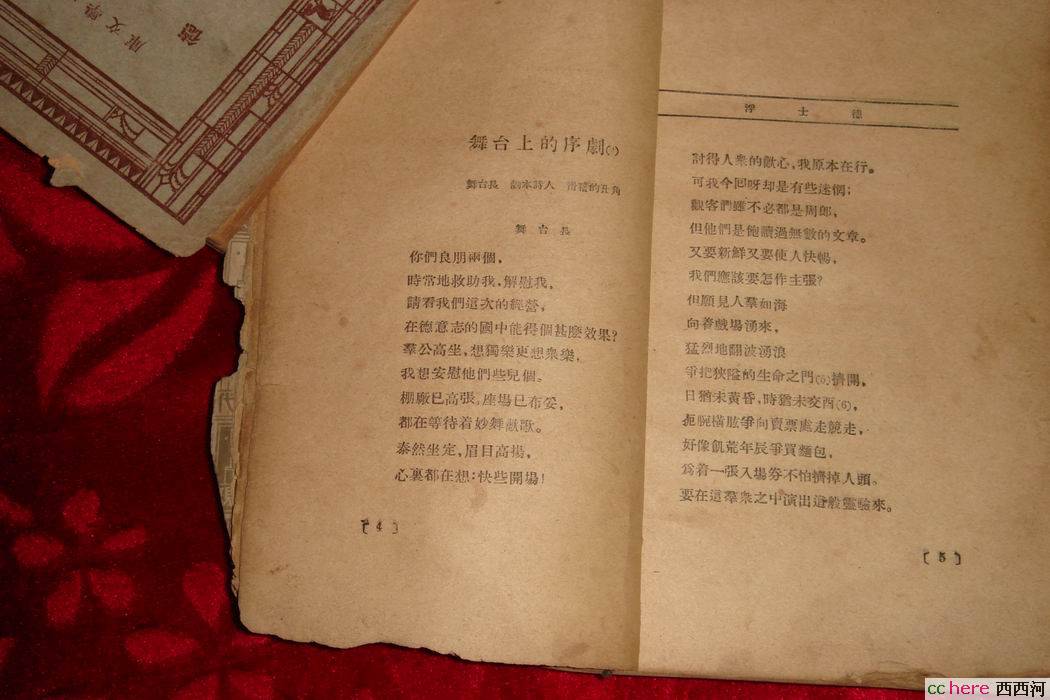 庫文學
德
舞台上的序劇
舞台長 劇本詩人 滑稽的丑角
舞台長
你們良朋兩個，
時常地救助我，解慰我，
請看我們這次的經營，
在德意志的國中能得個甚麽效果？
羣公高坐，想獨樂更想衆樂，
我想安慰他們些兒個。
棚廠已高張，座場已布妥，
都在等待着妙舞酣歌。
泰然坐定，眉目高揚，
心裏都在想：快些開場！
〔4〕
浮士德
討得人衆的歡心，我原本在行。
可我今回呀却是有些迷惘；
觀客們雖不必都是周郎，
但他們是飽讀過無數的文章。
又要新鮮又要使人快暢，
我們應該要怎作主張？
但願見人羣如海
向着戲場湧來，
猛烈地翻波湧浪
爭把狹隘的生命之門(5)擠開，
日猶未黃昏，時猶未交酉(6)，
扼腕橫肱爭向賣票處走競走，
好像飢荒年辰爭買麵包，
爲着一張入場券不怕擠掉人頭。
要在這羣衆之中演出這般靈驗來。
〔5〕
cchere 西西河